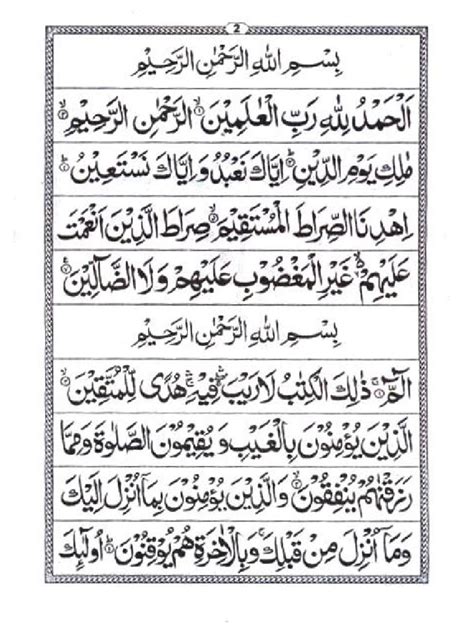 2
بِسْمِ اللهِ الرَّحْمٰنِ الرَّحِيْمِ
اَلْحَمْدُ لِلّٰهِ رَبِّ الْعٰلَمِيْنَ ۙ۱ الرَّحْمٰنِ الرَّحِيْمِ ۙ۲
مٰلِكِ يَوْمِ الدِّيْنِ ؕ۳ اِيَّاكَ نَعْبُدُ وَ اِيَّاكَ نَسْتَعِيْنُ ؕ۴
اِهْدِنَا الصِّرَاطَ الْمُسْتَقِيْمَ ۙ۵ صِرَاطَ الَّذِيْنَ اَنْعَمْتَ
عَلَيْهِمْ ۙ۬۶ غَيْرِ الْمَغْضُوْبِ عَلَيْهِمْ وَلَا الضَّآلِّيْنَ ۷
بِسْمِ اللهِ الرَّحْمٰنِ الرَّحِيْمِ
الٓمّٓ ۚ۱ ذٰلِكَ الْكِتٰبُ لَا رَيْبَ ۛۖ فِيْهِ ۛۚ هُدًى لِّلْمُتَّقِيْنَ ۙ۲
الَّذِيْنَ يُؤْمِنُوْنَ بِالْغَيْبِ وَ يُقِيْمُوْنَ الصَّلٰوةَ وَمِمَّا
رَزَقْنٰهُمْ يُنْفِقُوْنَ ۙ۳ وَالَّذِيْنَ يُؤْمِنُوْنَ بِمَاۤ اُنْزِلَ اِلَيْكَ
وَمَاۤ اُنْزِلَ مِنْ قَبْلِكَ ۚ وَبِالْاٰخِرَةِ هُمْ يُوْقِنُوْنَ ؕ۴ اُولٰٓئِكَ